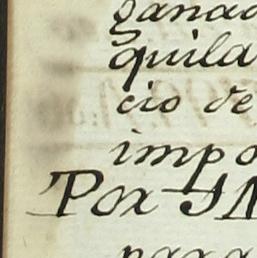 ganad
quila
cio de
impo
Por
para